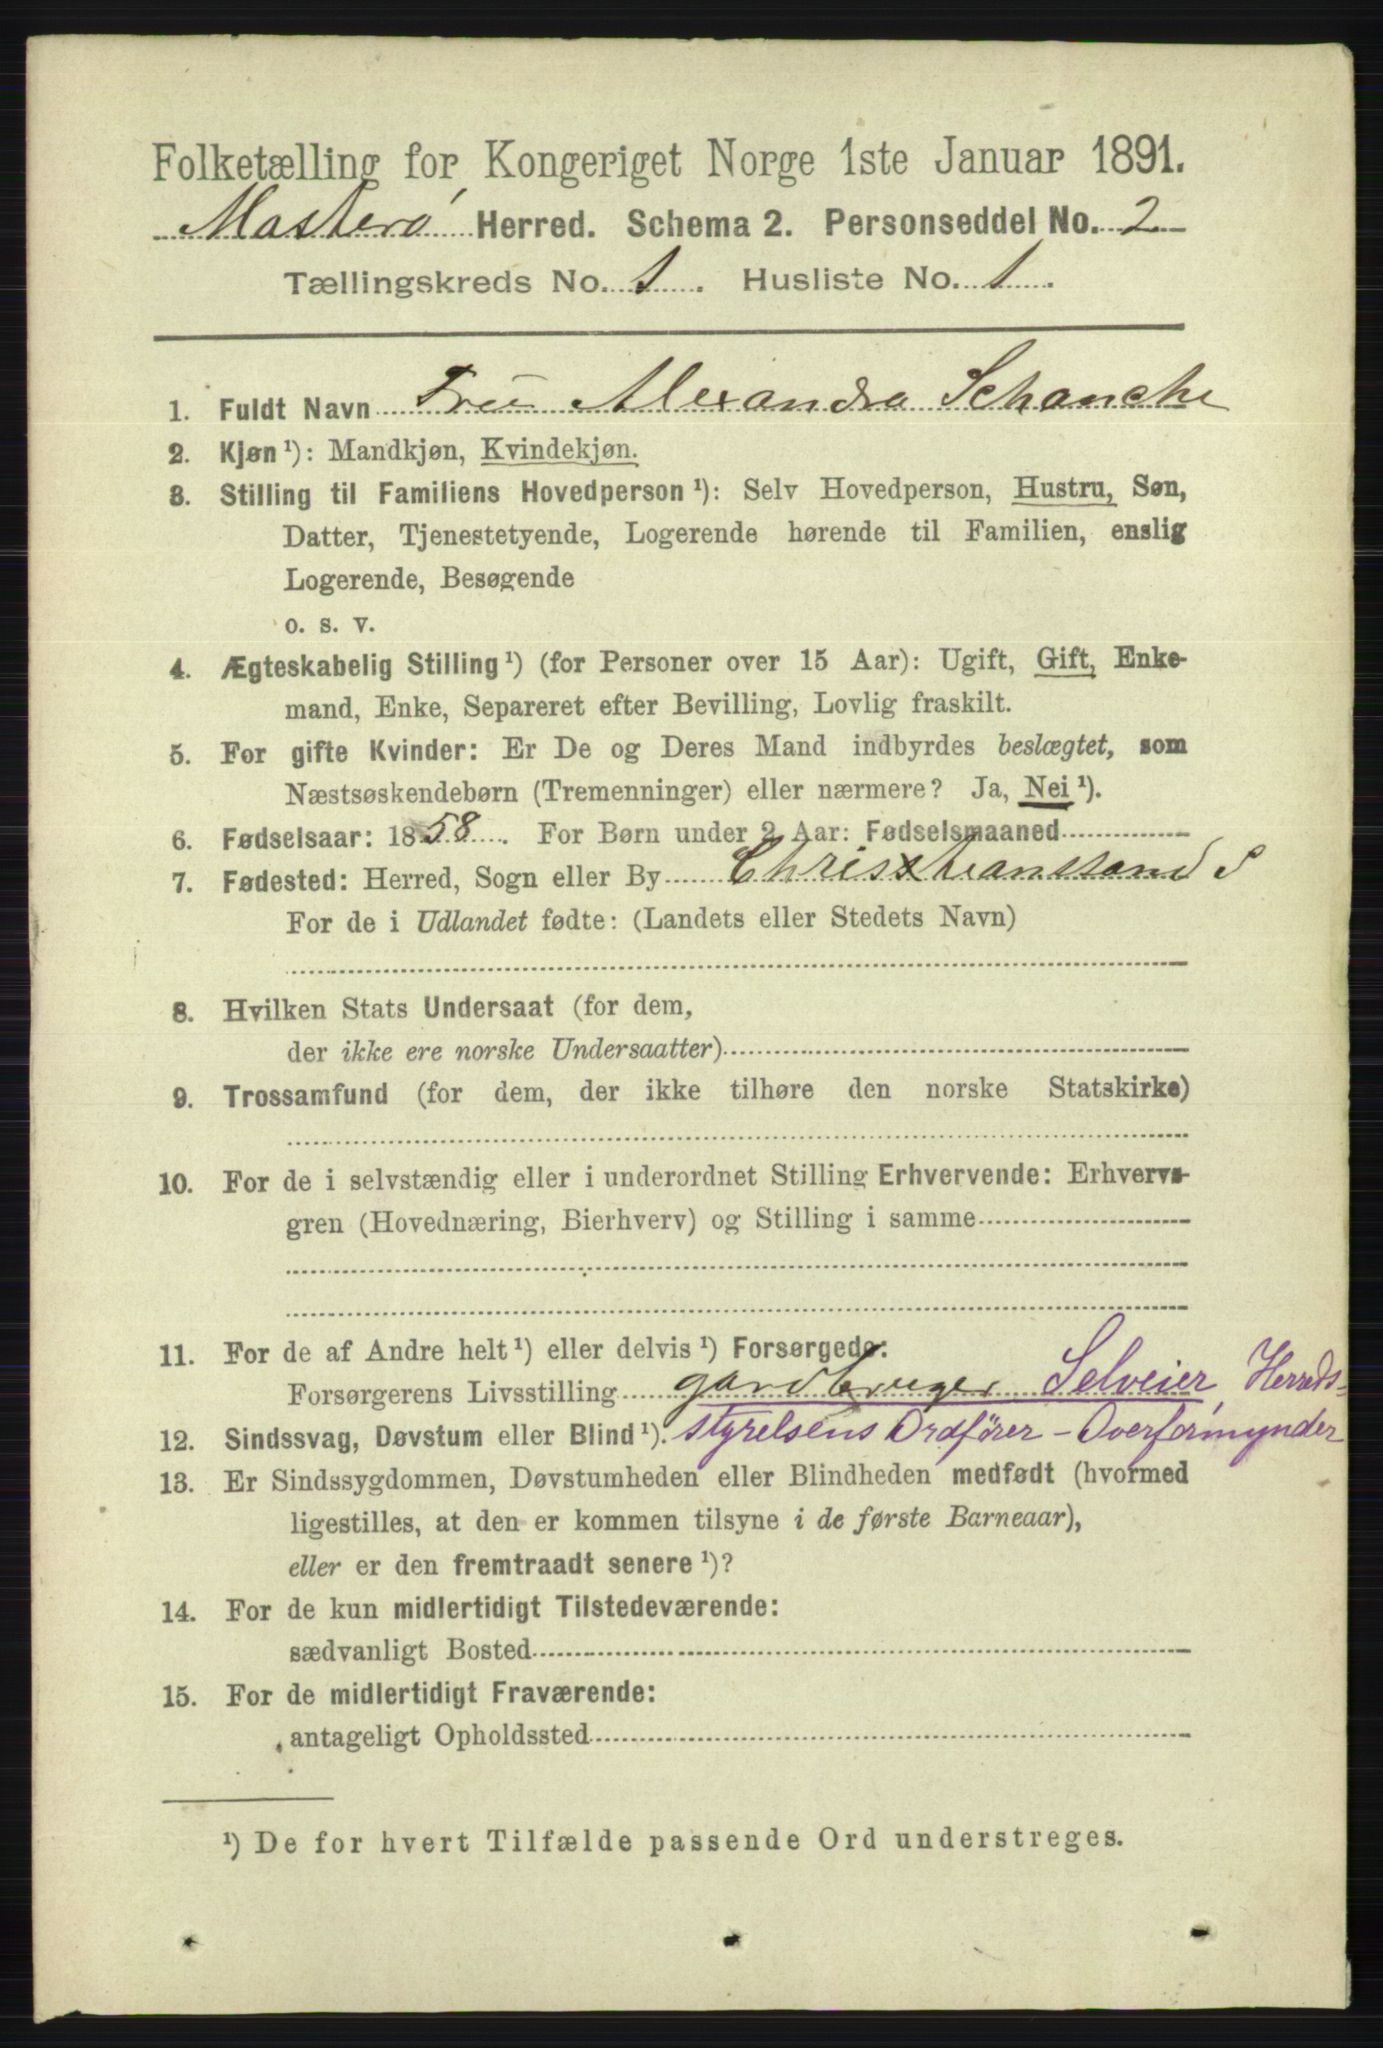 Folketælling for Kongeriget Norge 1ste Januar 1891.
Masterø Herred. Schema 2. Personseddel No. 2
Tællingskreds No. 1. Husliste No. 1.
1. Fuldt Navn Frü Alexandra Schanche
2. Kjøn ¹): Mandkjøn, Kvindekjøn.
3. Stilling til Familiens Hovedperson ¹): Selv Hovedperson, Hustru, Søn,
Datter, Tjenestetyende, Logerende hørende til Familien, enslig
Logerende, Besøgende
o. s. v.
4. Ægteskabelig Stilling ¹) (for Personer over 15 Aar): Ugift, Gift, Enke-
mand, Enke, Separeret efter Bevilling, Lovlig fraskilt.
5. For gifte Kvinder: Er De og Deres Mand indbyrdes beslægtet, som
Næstsøskendebørn (Tremenninger) eller nærmere? Ja, Nei ¹).
6. Fødselsaar: 1858. For Børn under 2 Aar: Fødselsmaaned
7. Fødested: Herred, Sogn eller By Christianssand S
For de i Udlandet fødte: (Landets eller Stedets Navn)
8. Hvilken Stats Undersaat (for dem,
der ikke ere norske Undersaatter)
9. Trossamfund (for dem, der ikke tilhøre den norske Statskirke)
10. For de i selvstændig eller i underordnet Stilling Erhvervende: Erhvervs-
gren (Hovednæring, Bierhverv) og Stilling i samme
11. For de af Andre helt ¹) eller delvis ¹) Forsørgede:
Forsørgerens Livsstilling gardbruger Selveier Herreds-
12. Sindssvag, Døvstum eller Blind ¹). styrelsens Ordfører - Overformynder
13. Er Sindssygdommen, Døvstumheden eller Blindheden medfødt (hvormed
ligestilles, at den er kommen tilsyne i de første Barneaar),
eller er den fremtraadt senere ¹)?
14. For de kun midlertidigt Tilstedeværende:
sædvanligt Bosted
15. For de midlertidigt Fraværende:
antageligt Opholdssted
¹) De for hvert Tilfælde passende Ord understreges.